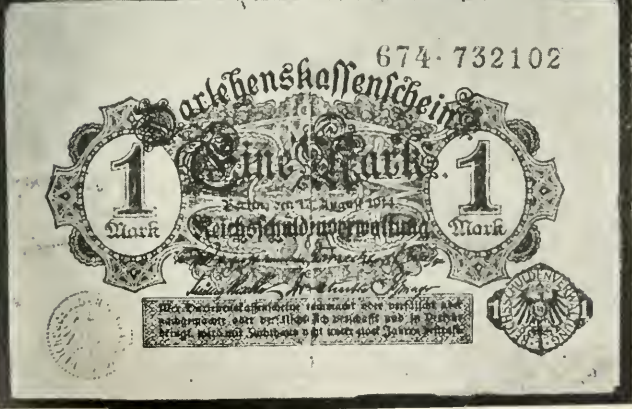 674·732102
Darlehenskassenschein
Eine Mark
1 Mark
1 Mark
Berlin, den 12. August 1914.
Reichsschuldenverwaltung
Wer Darlehenskassenscheine nachmacht oder verfälscht oder
nachgemachte oder verfälschte sich verschafft und in Verkehr
bringt, wird mit Zuchthaus nicht unter zwei Jahren bestraft.
1
1